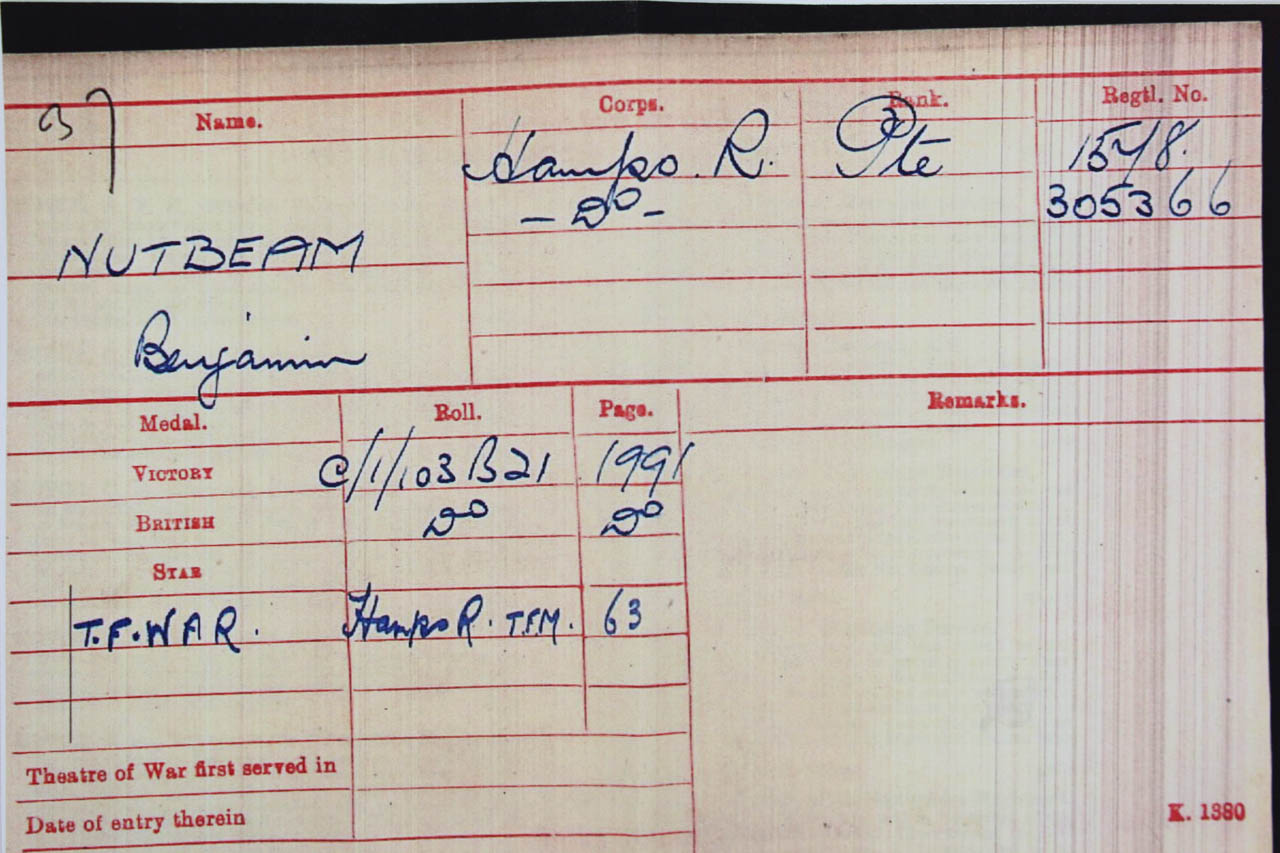 Name. Corps. Rank. Regtl. No.
Hamps. R. Pte 1548.
- Do - 305366
NUTBEAM
Benjamin
Medal. Roll. Page. Remarks.
VICTORY C/1/103 B21 1991
BRITISH Do Do
STAR
T.F. WAR. Hamps R. T.F.M. 63
Theatre of War first served in
Date of entry therein
K. 1380